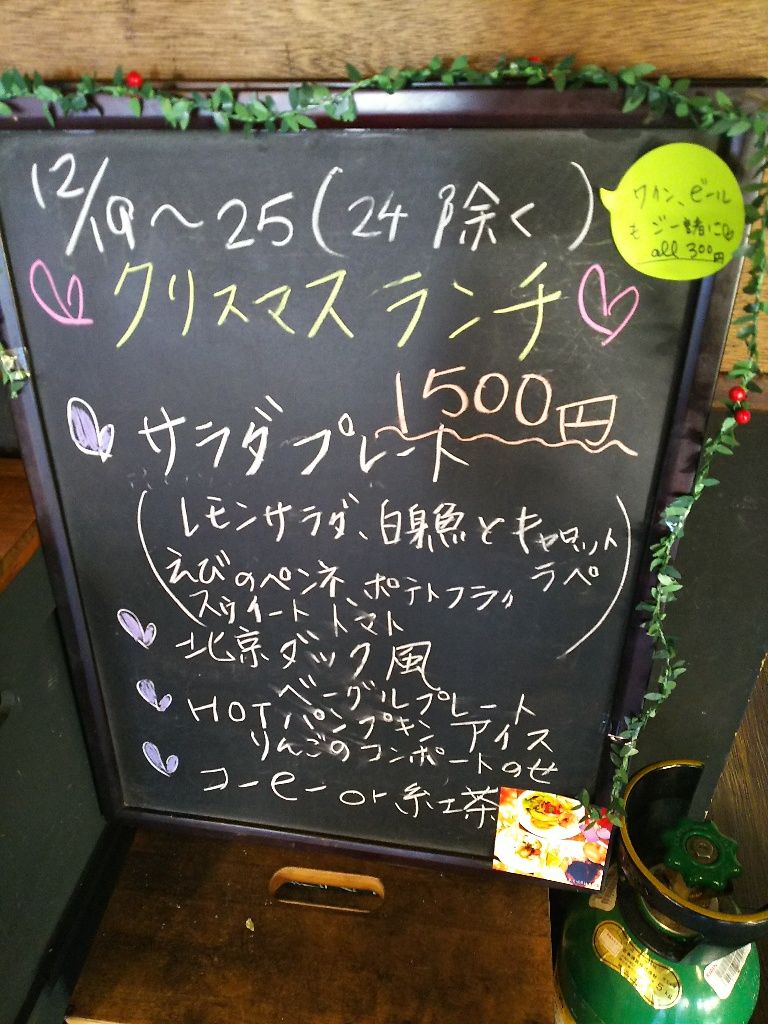 12/19〜25(24日除く)
ワイン、ビール
もご一緒に
all 300円
クリスマスランチ
1500円
サラダプレート
(レモンサラダ、白身魚とキャロット
ラペ
えびのペンネ、ポテトフライ
スウィートトマト)
北京ダック風
ベーグルプレート
HOTパンプキンアイス
りんごのコンポートのせ
コーヒーor紅茶